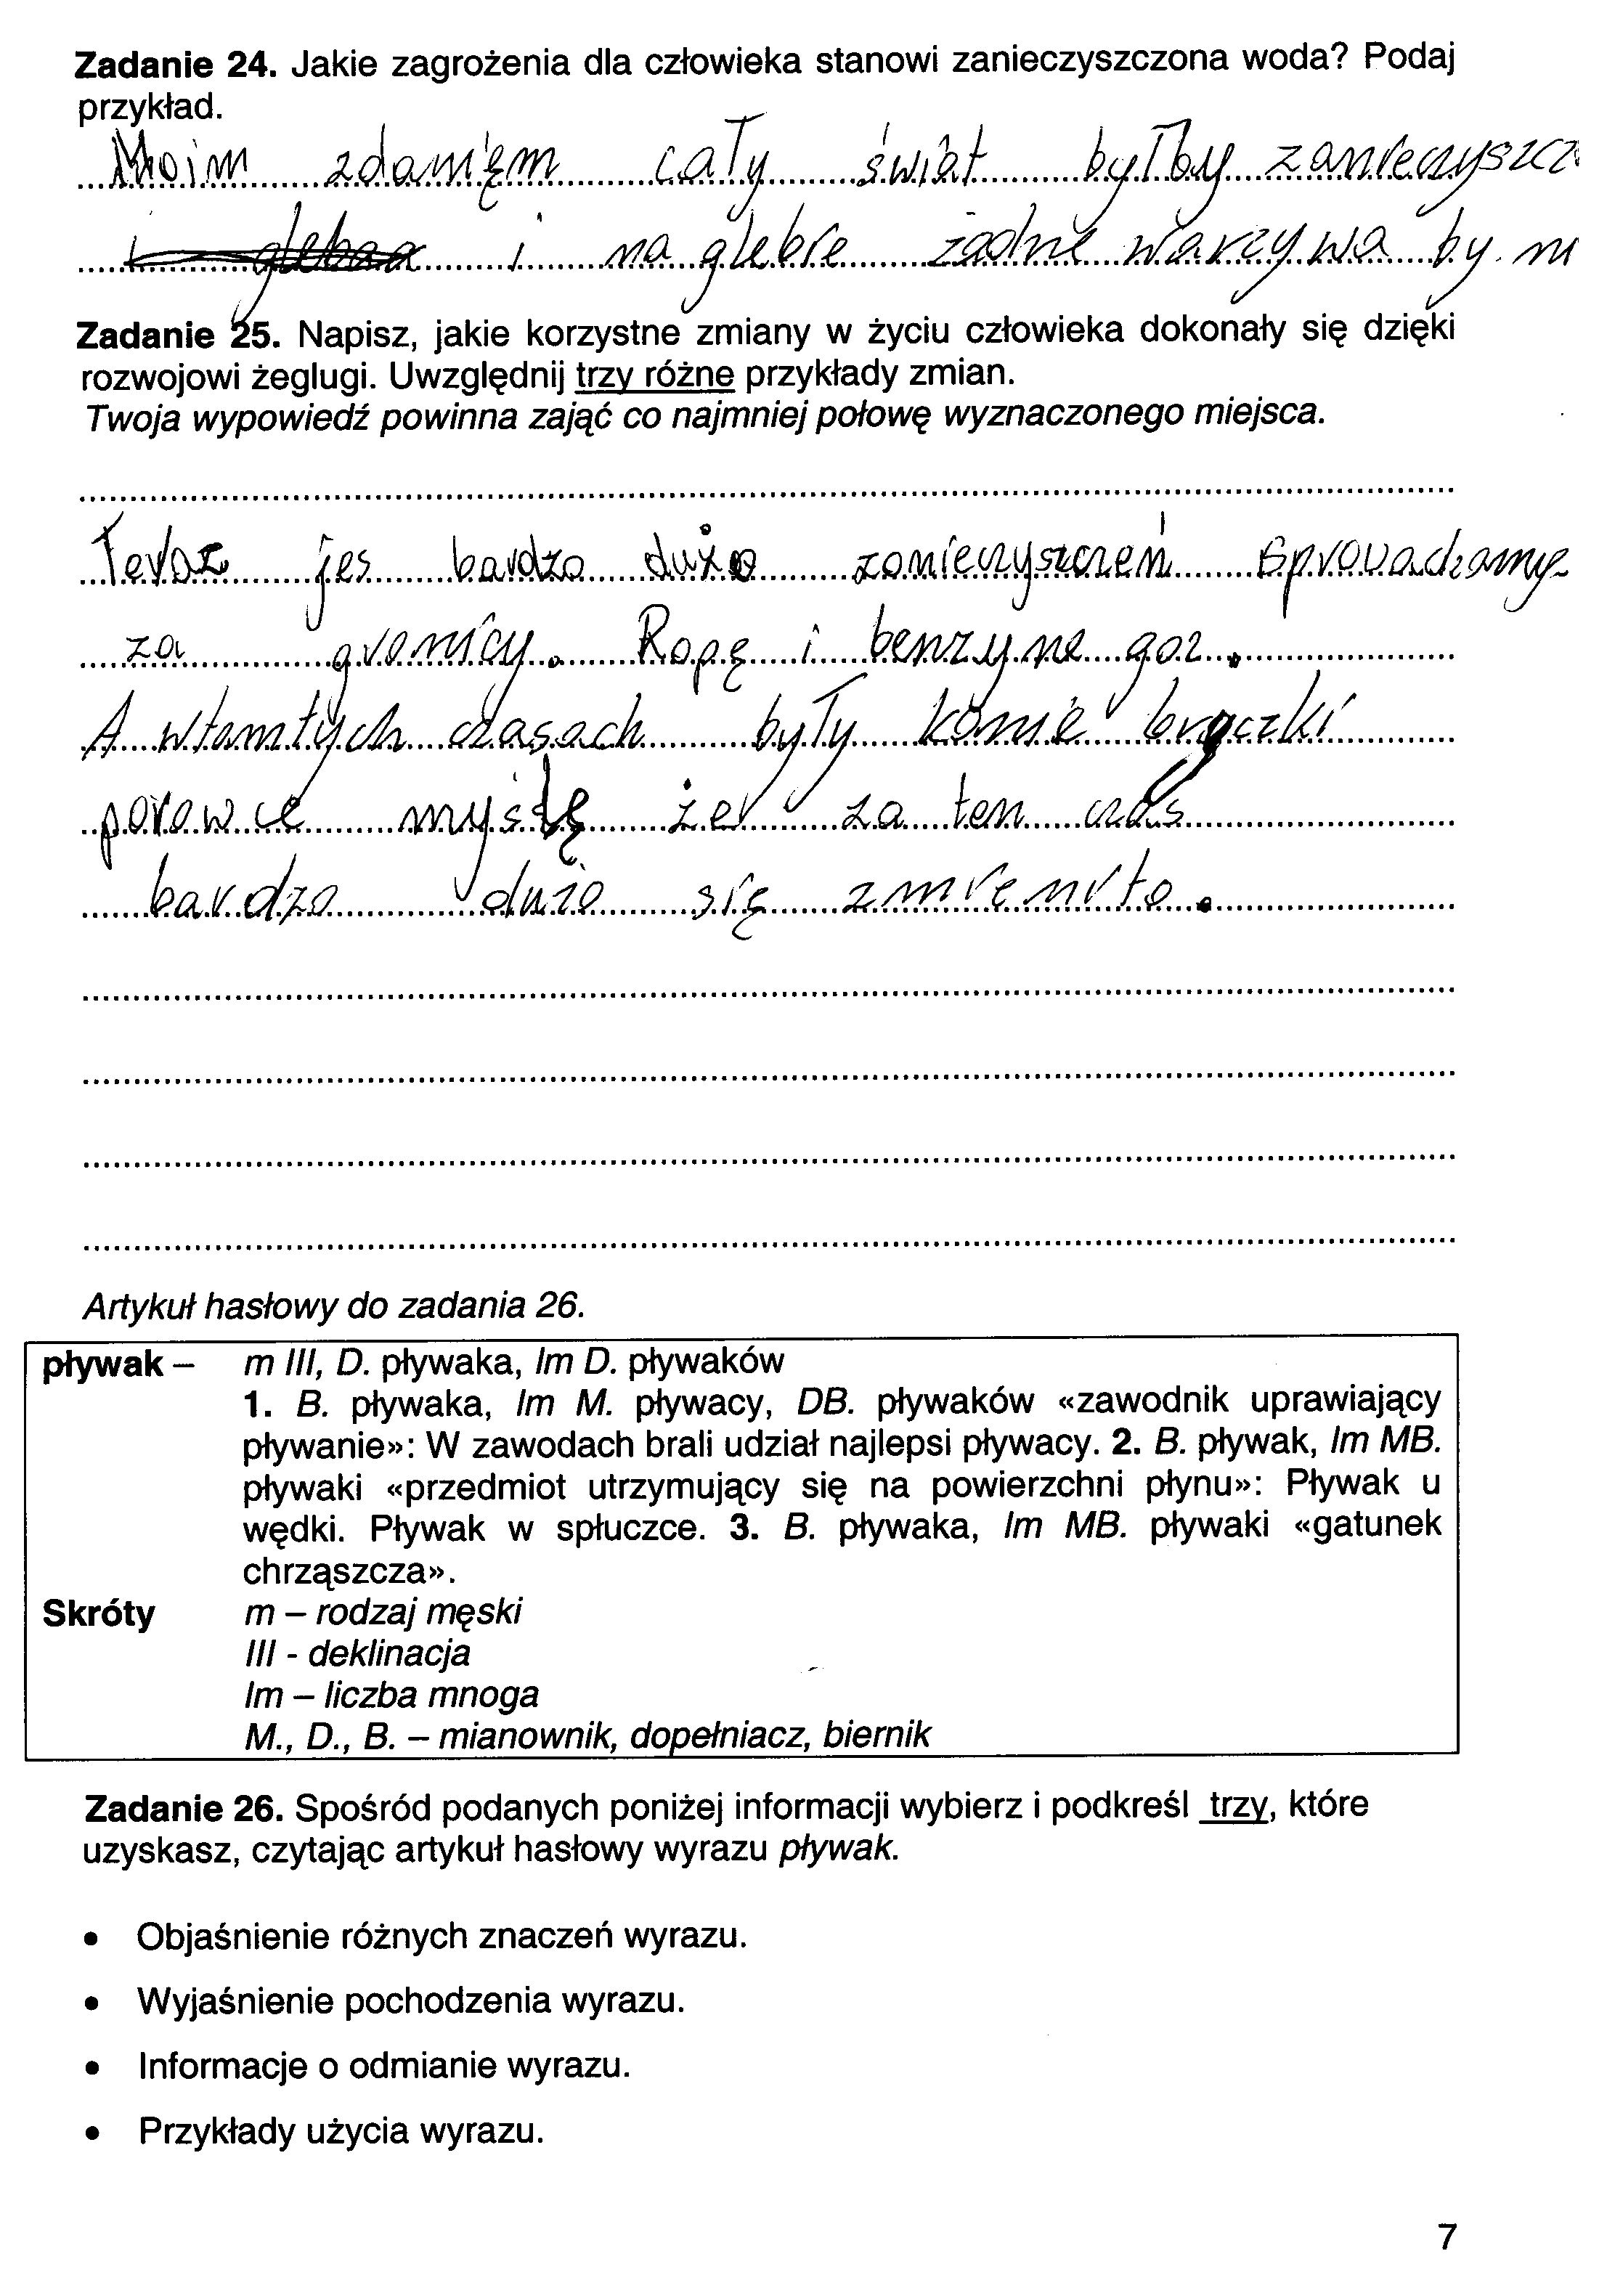 Zadanie 24. Jakie zagrożenia dla człowieka stanowi zanieczyszczona woda? Podaj
przykład.
Moim zdanięm cały świat byłby zanieczyszcz
i gleba i na glebie żadne warzywa by. ni
Zadanie 25. Napisz, jakie korzystne zmiany w życiu człowieka dokonały się dzięki
rozwojowi żeglugi. Uwzględnij trzy różne przykłady zmian.
Twoja wypowiedź powinna zająć co najmniej połowę wyznaczonego miejsca.
Teraz jes bardzo dużo zanieczyszczeń. Sprowadzamy
za granicy. Ropę i benzyne gaz.
A wtamtych czasach były konie bryczki
parowce myślę że za ten czas
bardzo dużo się zmieniło.
Artykuł hasłowy do zadania 26.
pływak – m III, D. pływaka, lm D. pływaków
1. B. pływaka, lm M. pływacy, DB. pływaków «zawodnik uprawiający
pływanie»: W zawodach brali udział najlepsi pływacy. 2. B. pływak, lm MB.
pływaki «przedmiot utrzymujący się na powierzchni płynu»: Pływak u
wędki. Pływak w spłuczce. 3. B. pływaka, lm MB. pływaki «gatunek
chrząszcza».
Skróty m – rodzaj męski
III - deklinacja
lm – liczba mnoga
M., D., B. – mianownik, dopełniacz, biernik
Zadanie 26. Spośród podanych poniżej informacji wybierz i podkreśl trzy, które
uzyskasz, czytając artykuł hasłowy wyrazu pływak.
• Objaśnienie różnych znaczeń wyrazu.
• Wyjaśnienie pochodzenia wyrazu.
• Informacje o odmianie wyrazu.
• Przykłady użycia wyrazu.
7